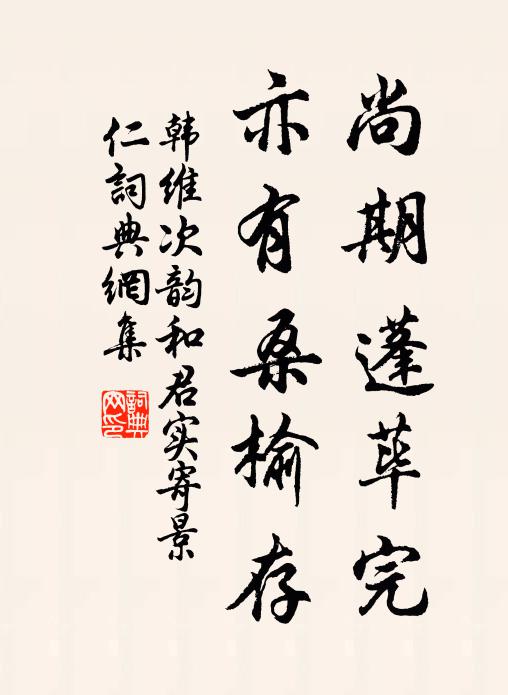 尚期蓬荜完
亦有桑榆存
韩维次韵和君实寄景
仁詞典網集
詞典网印